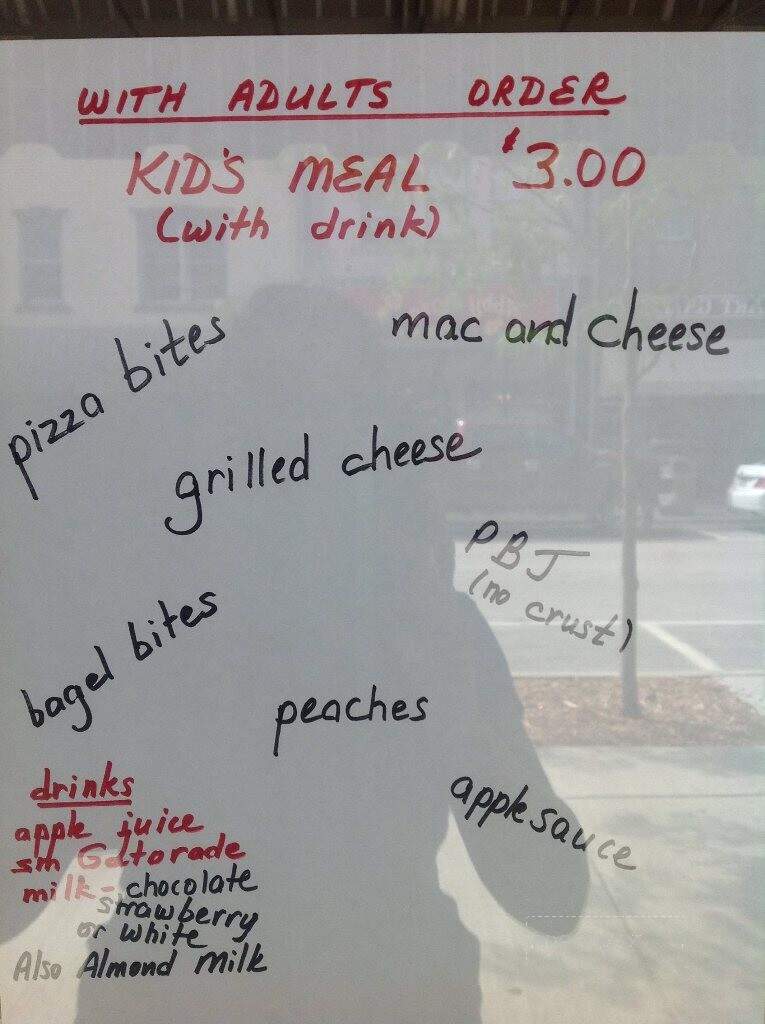 WITH ADULTS ORDER
KID'S MEAL $3.00
(with drink)
pizza bites
mac and cheese
grilled cheese
PBJ
(no crust)
bagel bites
peaches
applesauce
drinks
apple juice
sm Gatorade
milk - chocolate
strawberry
or white
Also Almond Milk